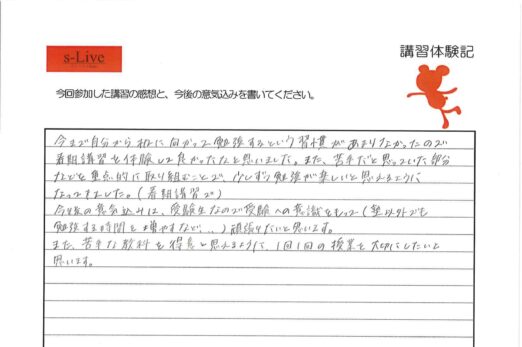 s-Live
講習体験記
今回参加した講習の感想と、今後の意気込みを書いてください。
今まで自分から机に向かって勉強するという習慣があまりなかったので
春期講習を体験して良かったなと思いました。また、苦手だと思っていた部分
などを重点的に取り組むことで、少しずつ勉強が楽しいと思えるように
なってきました。(春期講習で)
今後の意気込みは、受験生なので受験への意識をもって(塾以外でも
勉強する時間を増やすなど...)頑張りたいと思います。
また、苦手な教科を得意と思えるように、1回1回の授業を大切にしたいと
思います。